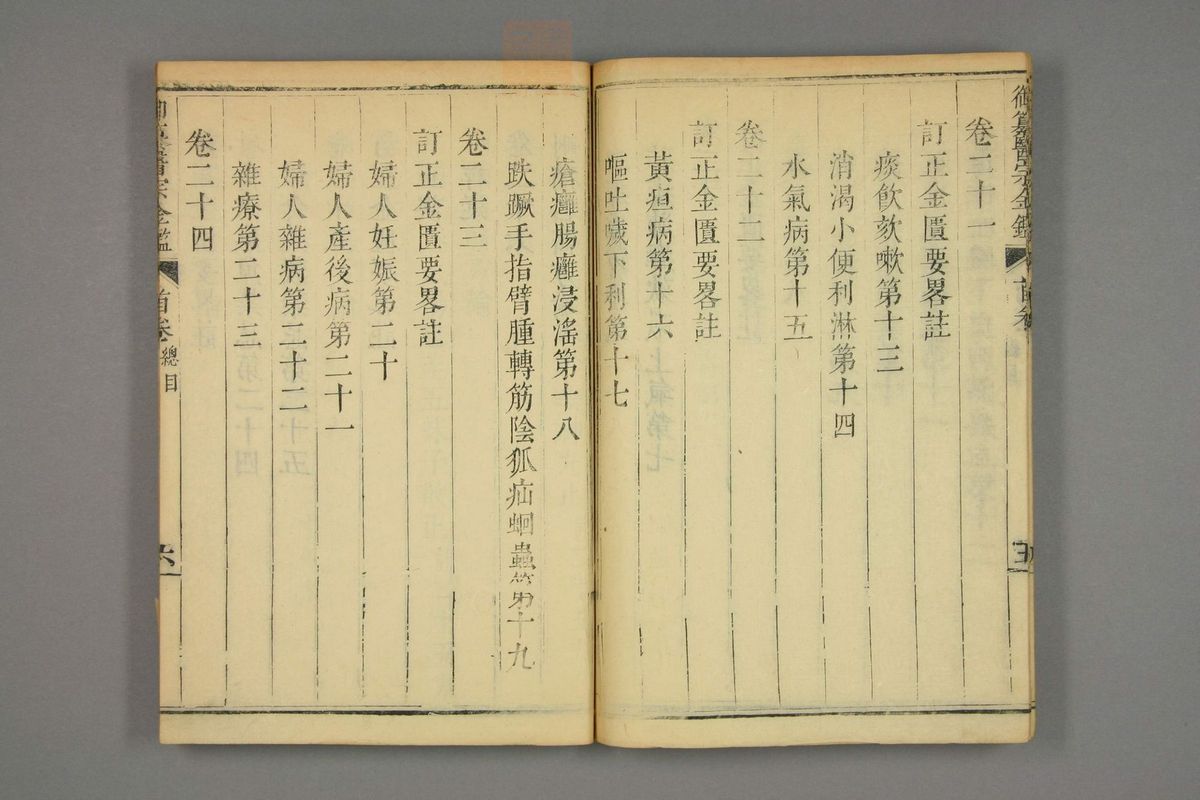 御纂醫宗金鑑
首卷
五
卷二十一
訂正金匱要畧註
痰飲欬嗽第十三
消渴小便利淋第十四
水氣病第十五
卷二十二
訂正金匱要畧註
黃疸病第十六
嘔吐噦下利第十七
瘡癰腸癰浸淫第十八
趺蹶手指臂腫轉筋陰狐疝蛔蟲第十九
卷二十三
訂正金匱要畧註
婦人妊娠第二十
婦人產後病第二十一
婦人雜病第二十二
雜療第二十三
卷二十四
御纂醫宗金鑑
首卷
總目
六